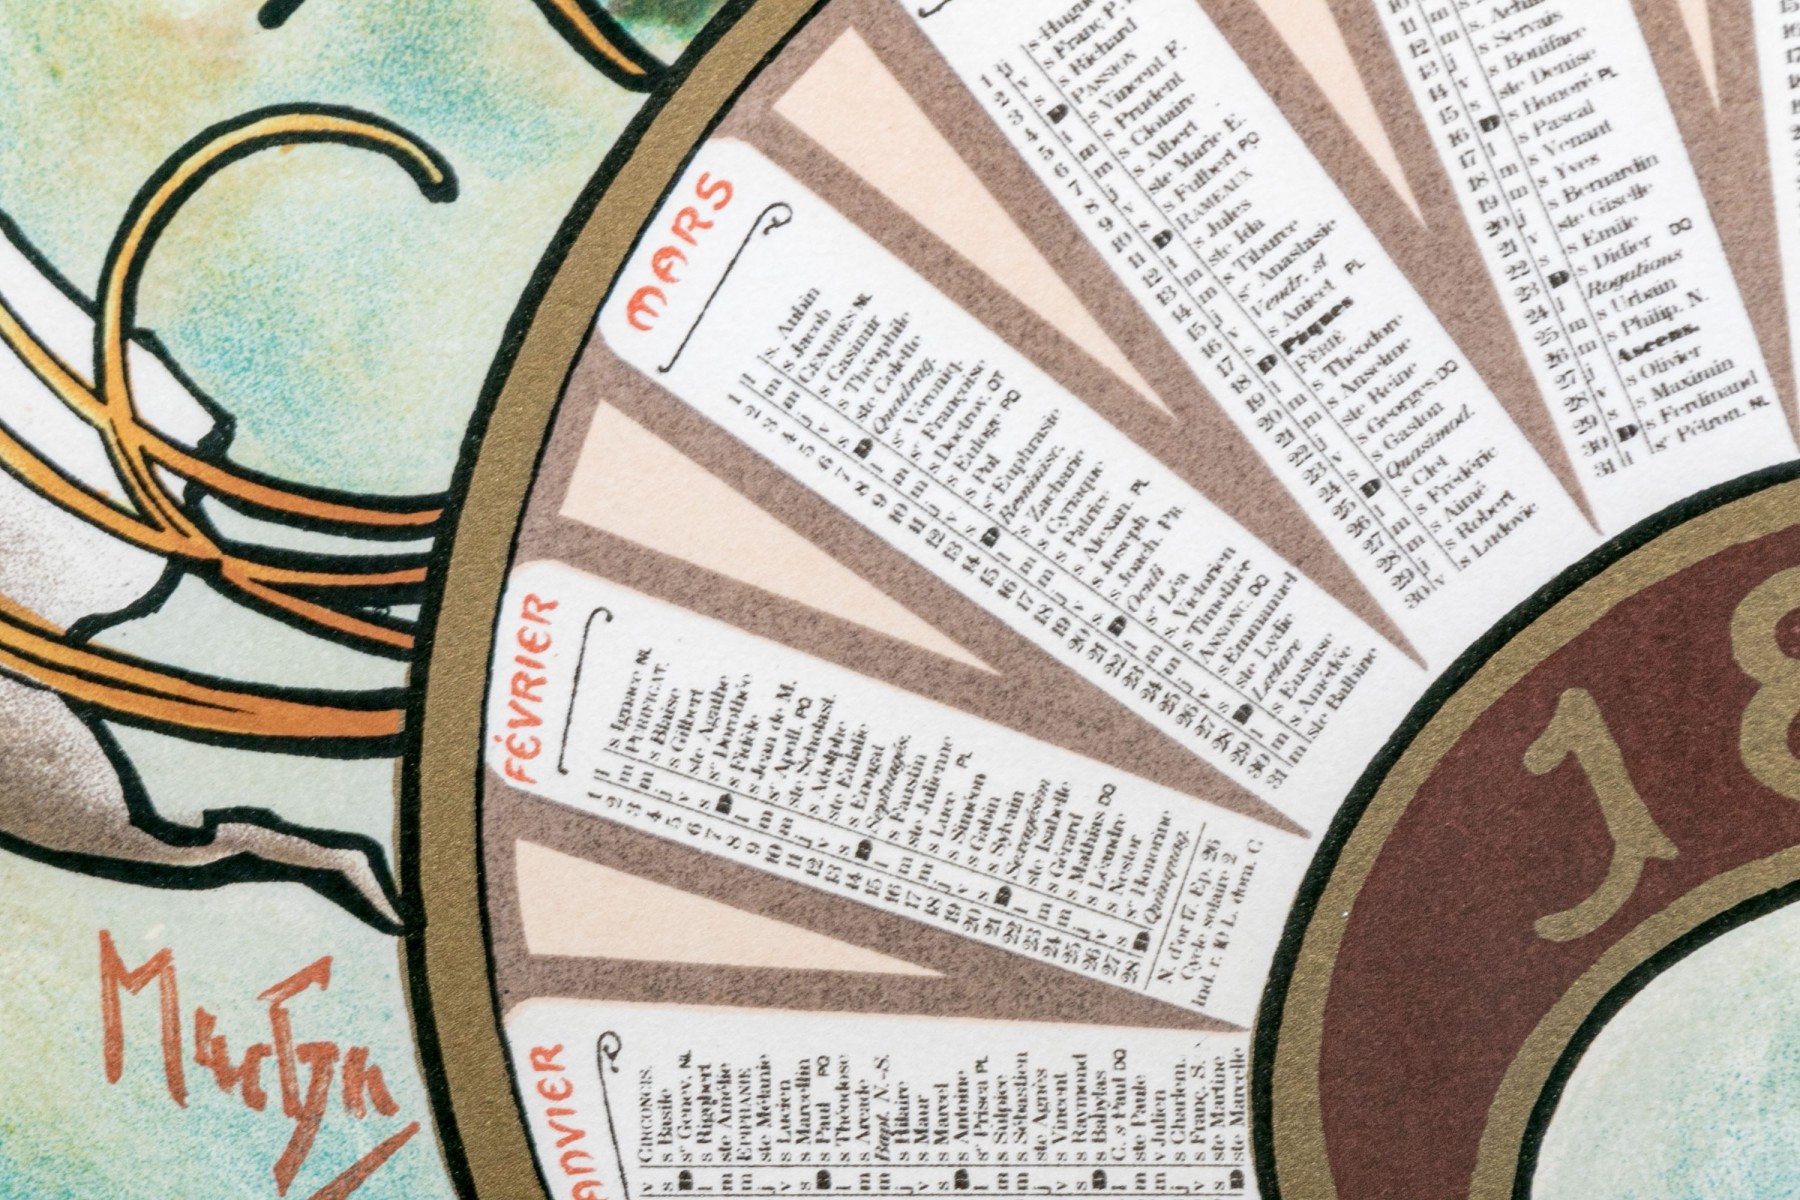 MARS
1 l s. Aubin
2 m s Jacob
3 m CENDRES NL
4 j s Casimir
5 v s Théophile
6 s ste Colette
7 D Quadrag.
8 l
9 m se Françoise
10 m s Doctrov. QT
11 j s Euloge PQ
12 v s Pol
13 s se Euphrasie
14 D Reminisc.
15 l s Zacharie
16 m s Cyriaque
17 m s Patrice
18 j s Alexan. PL
19 v s Joseph
20 s s Joach. Pr.
21 D Oculi
22 l se Léa
23 m s. Victorien
24 m s Timothée
25 j ANNONC. DQ
26 v s Emmanuel
27 s ste Lydie
28 D Laetare
29 l s Eustase
30 m s Amédée
31 m ste Balbine
FÉVRIER
1 l s Ignace NL
2 m PURIFICAT.
3 m s Blaise
4 j s Gilbert
5 v ste Agathe
6 s se Dorothée
7 D s Fidèle
8 l s Jean de M.
9 m se Apoll. PQ
10 m ste Scholast.
11 j s Adolphe
12 v ste Eulalie
13 s s Enogat
14 D Septuagés.
15 l s Faustin
16 m ste Julienne
17 m s Lucc PL
18 j s Siméon
19 v s Gabin
20 s s Sylvain
21 D Sexagésim
22 l ste Isabelle
23 m s Gérard
24 m s Mathias DQ
25 j s Léandre
26 v s Nestor
27 s se Honorine
28 D Quinquag.
N. d'or 17. Ep. 26
Cycle solaire 2
Ind. r. 10 L. dom. C
ANVIER
v CIRCONCIS.
s s Basile
D se Genev. NL
l s Rigobert
m ste Amélie
m EPIPHANIE
j ste Mélanie
v s Lucien
s s Marcellin
D s Paul PQ
l s Théodose
m s Arcade
m Bapt. N.-S.
j s Hilaire
v s Maur
s s Marcel
D s Antoine
l se Prisca PL
m s Sulpice
m s Sébastien
j ste Agnès
v s Vincent
s s Raymond
D s Babylas
l C. s Paul DQ
m ste Paule
m s Julien
j s Charlem.
v s Franç. S.
s ste Martine
D ste Marcelle
s Hugu
1 j s Franç. P.
2 v s Richard
3 s
4 D PASSION
5 l s Vincent F.
6 m s Prudent
7 m s Clotaire
8 j s Albert
9 v ste Marie E.
10 s s Fulbert PQ
11 D RAMEAUX
12 l s Jules
13 m ste Ida
14 m s Tiburce
15 j se Anastasie
16 v Vendr. st
17 s s Anicet PL
18 D Pâques
19 l FÉRIÉ
20 m s Théodore
21 m s Anselme
22 j ste Reine
23 v s Georges DQ
24 s s Gaston
25 D Quasimod.
26 l s Clet
27 m s Frédéric
28 m s Aimé
29 j s Robert
30 v s Ludovic
s Servais
s Boniface
15 s ste Denise
16 D s Honoré PL
17 l s Pascal
18 m s Venant
19 m s Yves
20 j s Bernardin
21 v ste Giselle
22 s s Emile
23 D s Didier DQ
24 l Rogations
25 m s Urbain
26 m s Philip. N.
27 j Ascens.
28 v s Olivier
29 s s Maximin
30 D s Ferdinand
31 l se Pétron. NL
18